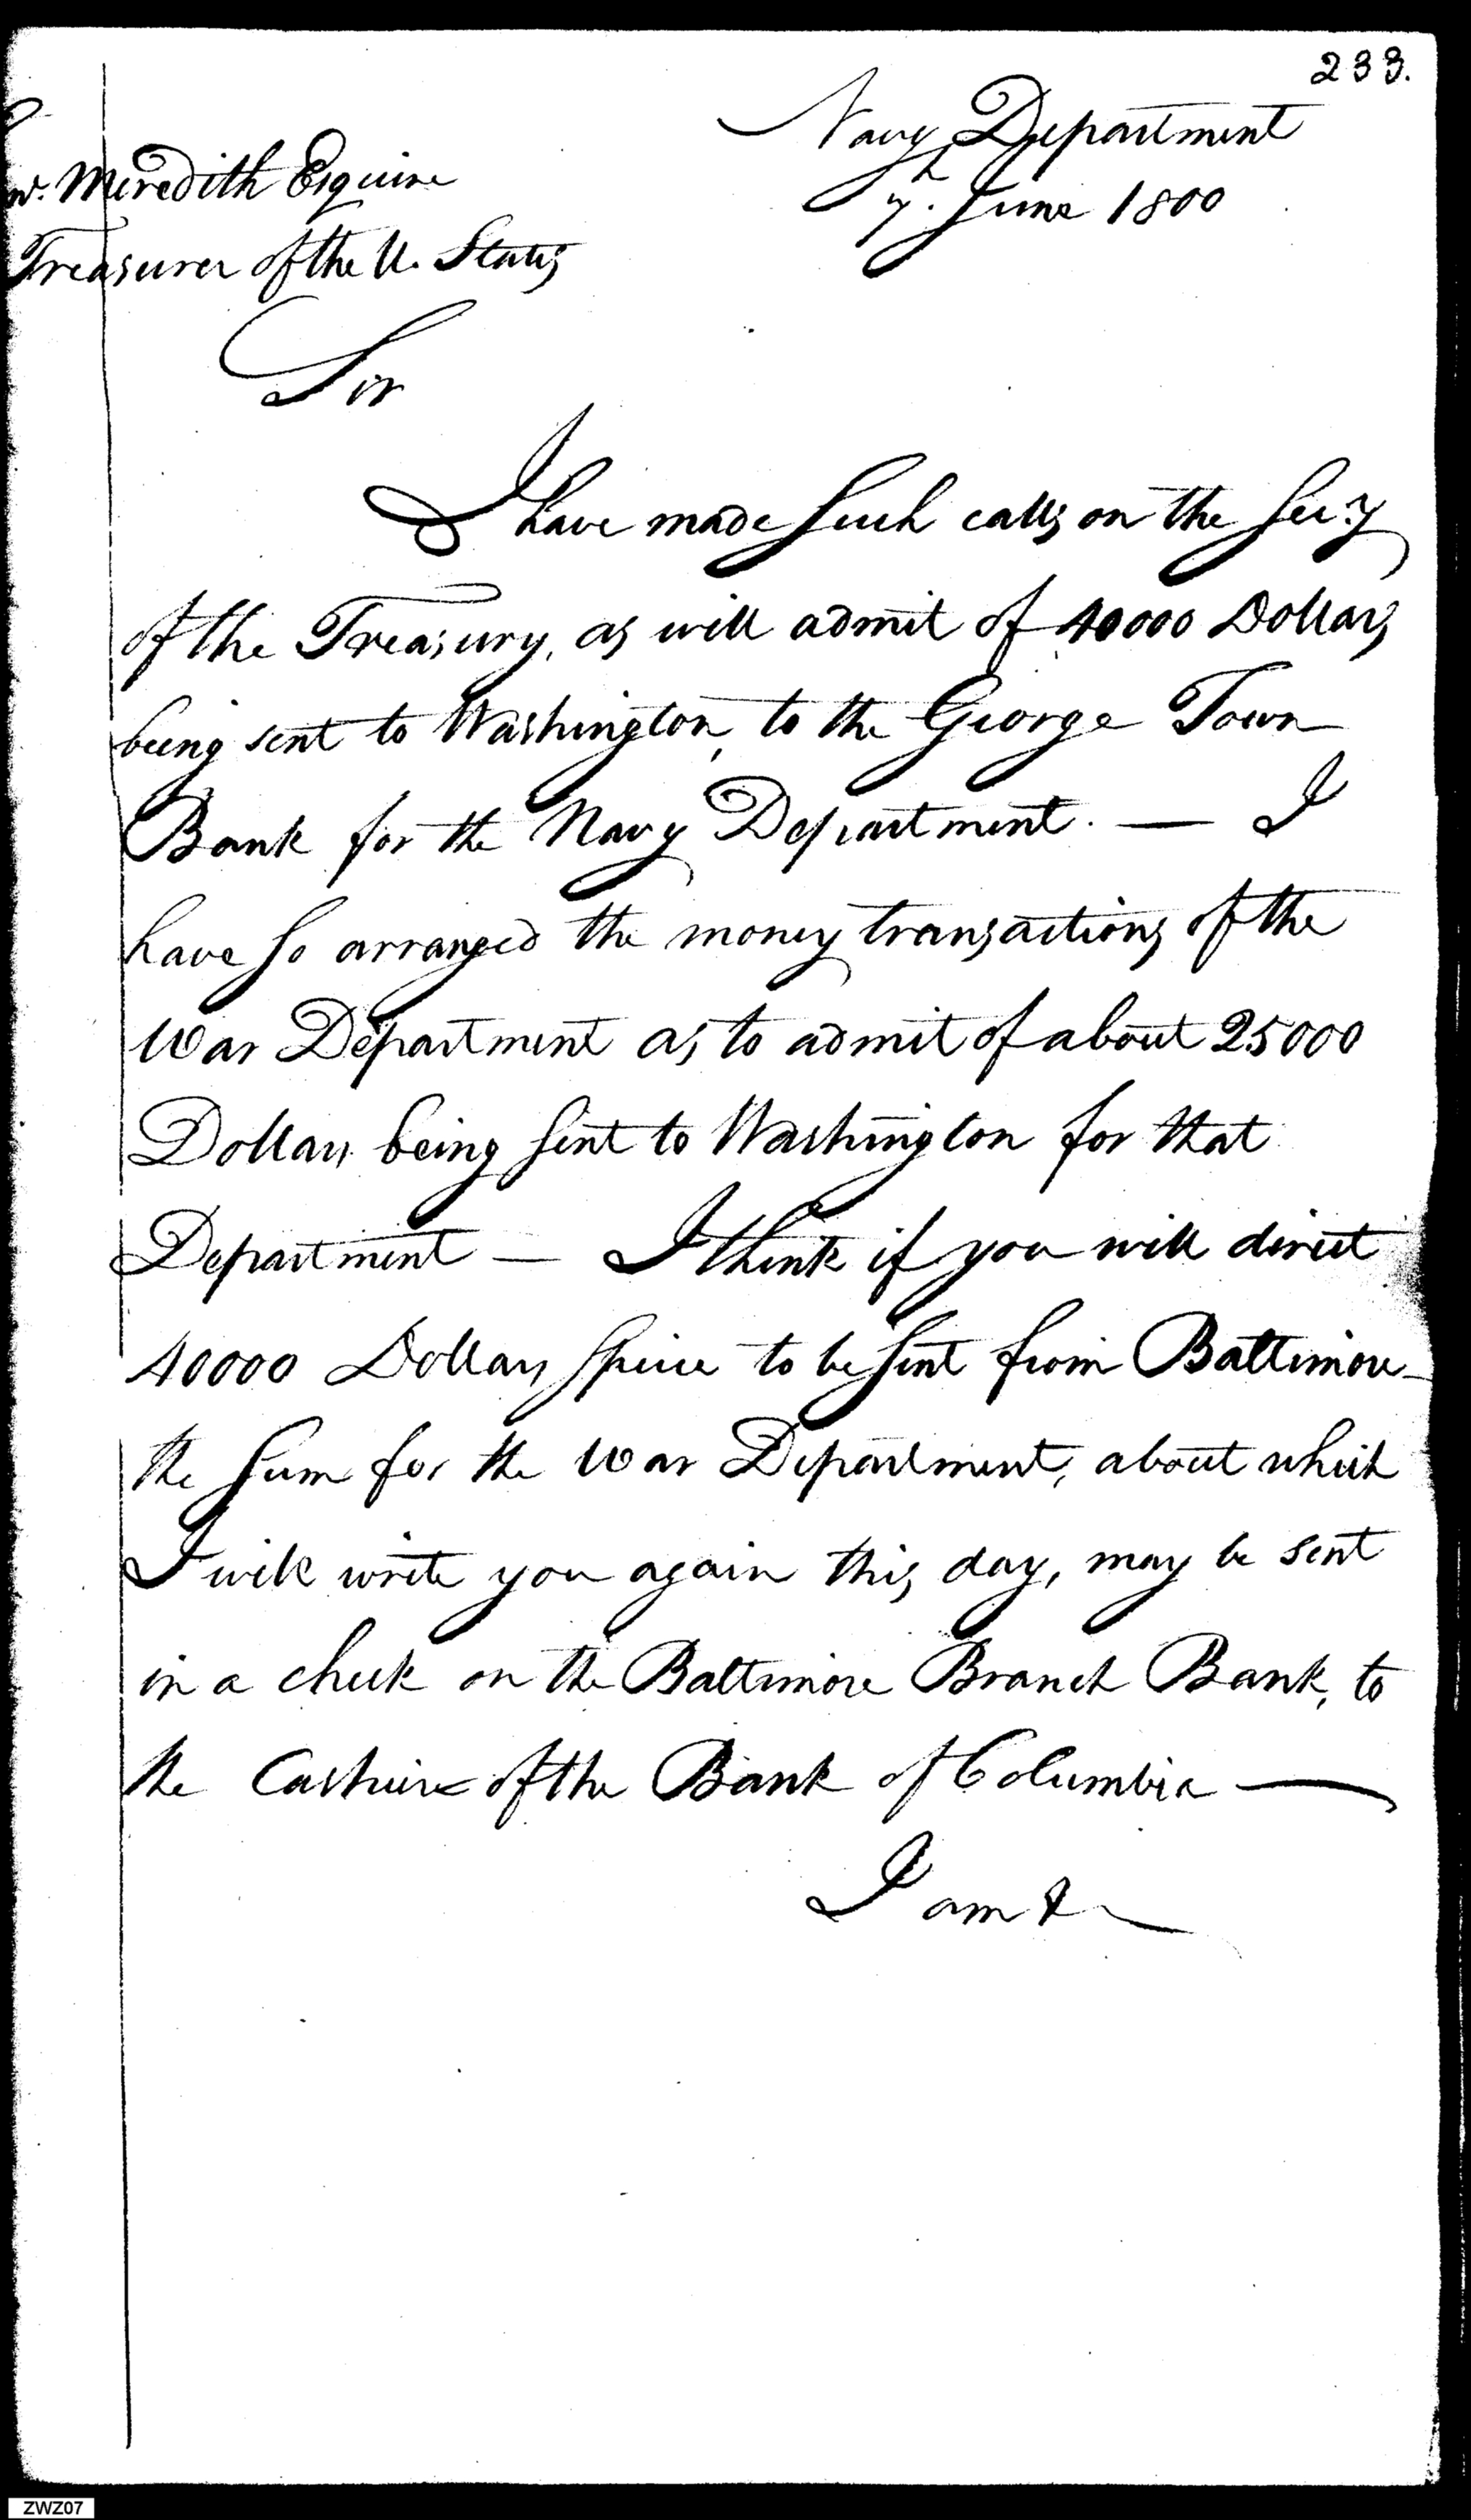 233.
Navy Department
7th June 1800
w. Meredith Esquire
Treasurer of the U. States
Sir
I have made such calls on the Sec.y
of the Treasury, as will admit of 40000 Dollars
being sent to Washington, to the George Town
Bank for the Navy Department. — I
have so arranged the money transactions of the
War Department as to admit of about 25000
Dollars being sent to Washington for that
Department — I think if you will direct
40000 Dollars specie to be sent from Baltimore
the sum for the War Department, about which
I will write you again this day, may be sent
in a check on the Baltimore Branch Bank, to
the Cashier of the Bank of Columbia —
I am &
ZWZ07